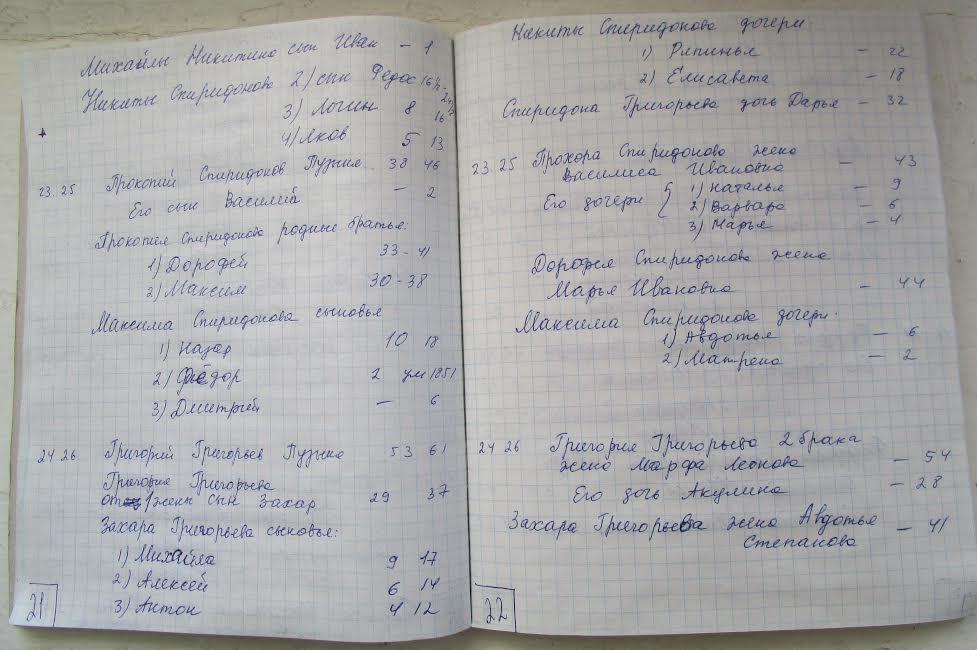 Михайлы Никитина сын Иван — 1
Никиты Спиридонова 2) сын Федос 16
3) Логин 8 16
4) Яков 5 13
23. 25 Прокопий Спиридонов Пузыня 38 46
Его сын Василий — 2
Прокопия Спиридонова родные братья:
1) Дорофей 33 - 41
2) Максим 30 - 38
Максима Спиридонова сыновья
1) Назар 10 18
2) Фёдор 2 ум 1851
3) Дмитрий — 6
24 26 Григорий Григорьев Пузыня 53 61
Григория Григорьева
от 1 жены сын Захар 29 37
Захара Григорьева сыновья:
1) Михайла 9 17
2) Алексей 6 14
3) Антон 4 12
21
Никиты Спиридонова дочери:
1) Рипинья — 22
2) Елисавета — 18
Спиридона Григорьева дочь Дарья — 32
23. 25 Прохора Спиридонова жена
Василиса Ивановна — 43
Его дочери { 1) Наталья — 9
2) Варвара — 6
3) Марья — 4
Дорофея Спиридонова жена
Марья Ивановна — 44
Максима Спиридонова дочери:
1) Авдотья — 6
2) Матрена — 2
24 26 Григория Григорьева 2 брака
жена Марфа Леонова — 54
Его дочь Акулина — 28
Захара Григорьева жена Авдотья
Степанова — 41
22